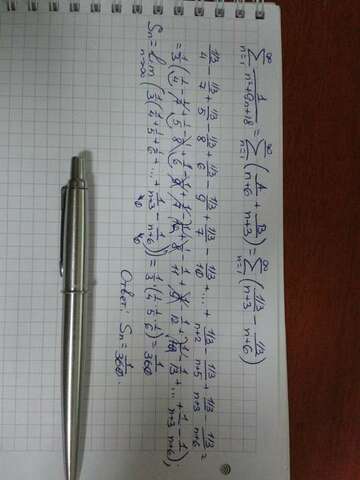 ∑_{n=1}^{∞} 1/(n²+9n+18) = ∑_{n=1}^{∞} (A/(n+6) + B/(n+3)) = ∑_{n=1}^{∞} ((1/3)/(n+3) - (1/3)/(n+6))
(1/3)/4 - (1/3)/7 + (1/3)/5 - (1/3)/8 + (1/3)/6 - (1/3)/9 + (1/3)/7 - (1/3)/10 + ... + (1/3)/(n+2) - (1/3)/(n+5) + (1/3)/(n+3) - (1/3)/(n+6) =
= 1/3 (1/4 - 1/7 + 1/5 - 1/8 + 1/6 - 1/9 + 1/7 - 1/10 + 1/8 - 1/11 + 1/9 - 1/12 + 1/10 - 1/13 + ... + 1/(n+3) - 1/(n+6));
Sn = lim_{n→∞} (1/3 (1/4 + 1/5 + 1/6 + ... + 1/(n+3) - 1/(n+6))) = 1/3 · (1/4 · 1/5 · 1/6) = 1/360
Ответ: Sn = 1/360.